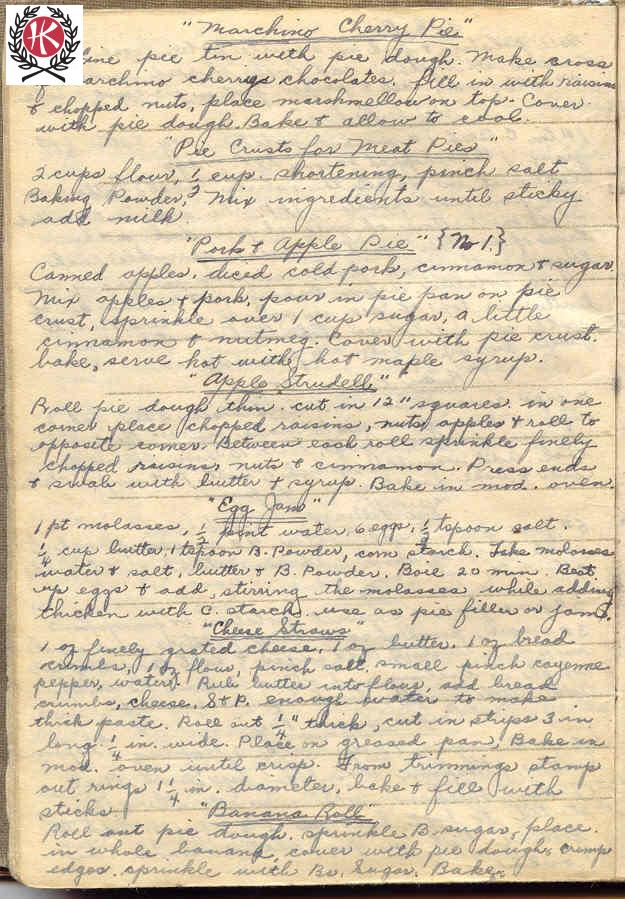 HK
"Marchino Cherry Pie"
Line pie tin with pie dough. Make cross
of marchino cherrys chocolates. fill in with raisins
& chopped nuts, place marshmellow on top. Cover
with pie dough. Bake & allow to cool.
"Pie Crusts for Meat Pies"
2 cups flour, 1/3 cup shortening, pinch salt
Baking Powder, Mix ingredients until sticky
add milk.
"Pork & Apple Pie" {No 1.}
Canned apples, diced cold pork, cinnamon & sugar.
Mix apples & pork, pour in pie pan on pie
crust, sprinkle over 1 cup sugar, a little
cinnamon & nutmeg. Cover with pie crust.
bake, serve hot with hot maple syrup.
"Apple Strudell"
Roll pie dough thin. cut in 12" squares. in one
corner place chopped raisins, nuts, apples & roll to
opposite corner. Between each roll sprinkle finely
chopped raisins, nuts & cinnamon. Press ends
& with butter & syrup. Bake in mod. oven.
"Egg Jam"
1 pt molasses, 1/2 pint water, 6 eggs, 1/2 tspoon salt.
1/4 cup butter, 1 tspoon B. Powder, corn starch. Take molasses
water & salt, butter & B. Powder. Boil 20 min. Beat
up eggs & add, stirring the molasses while adding
thicken with C. starch. use as pie filler or jam.
"Cheese Straws"
1 oz finely grated cheese, 1 oz butter. 1 oz bread
crumbs, 1 oz flour, pinch salt. small pinch cayenne
pepper, water. Rub butter into flour, add bread
crumbs, cheese, S & P. enough water to make
thick paste. Roll out 1/4" thick, cut in strips 3 in
long. 1/4 in. wide. Place on greased pan, Bake in
mod. oven until crisp. From trimmings stamp
out rings 1 1/4 in. diameter, bake & fill with
sticks.
"Banana Roll"
Roll out pie dough. sprinkle B. sugar, place
in whole banana, cover with pie dough, crimp
edges. sprinkle with Br. Sugar. Bake.